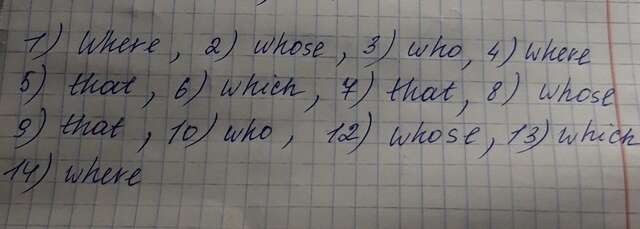 1) Where, 2) whose, 3) who, 4) where
5) that, 6) which, 7) that, 8) whose
9) that, 10) who, 12) whose, 13) which
14) where